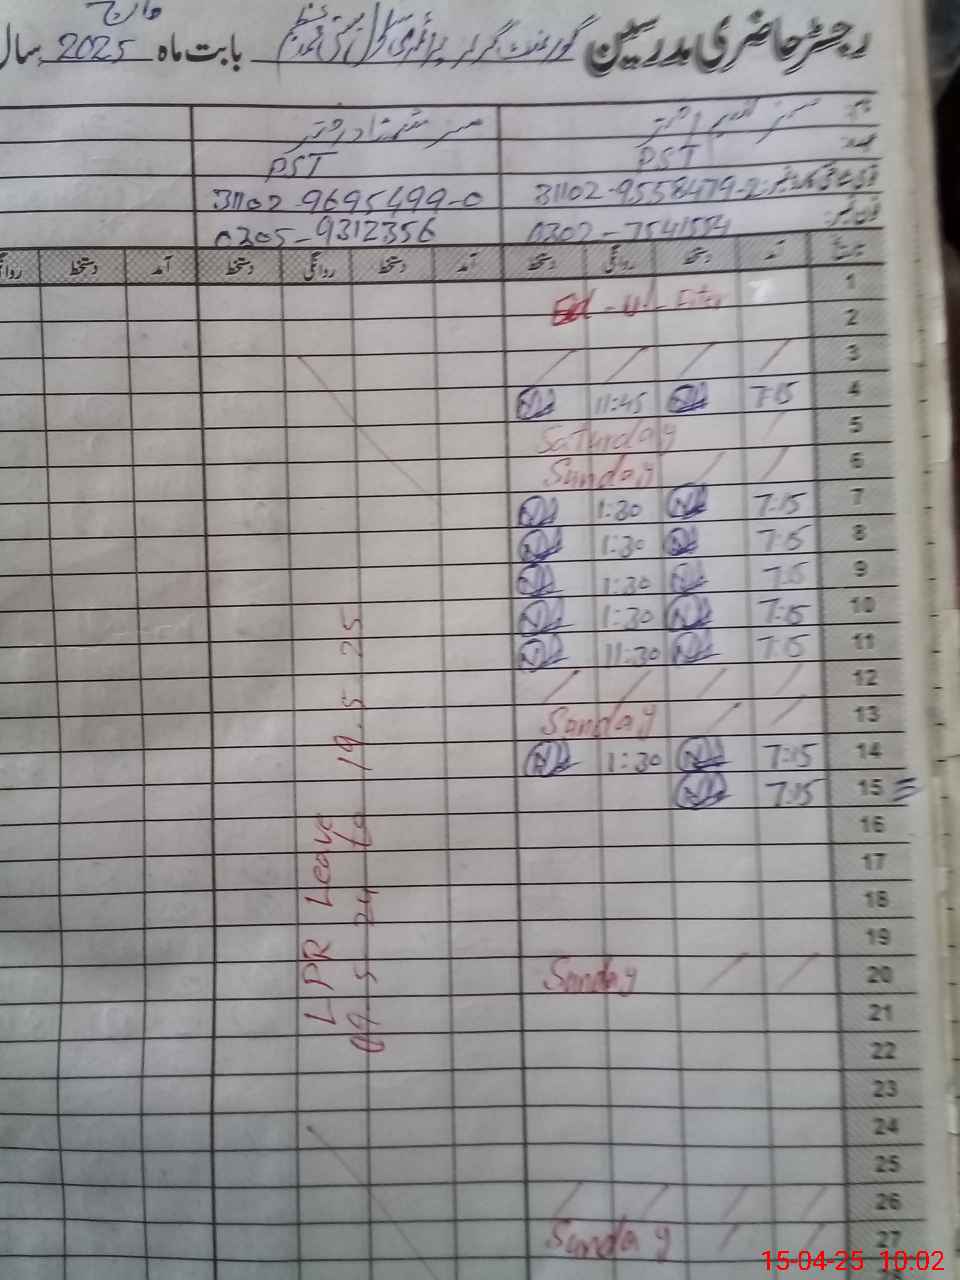 مارچ
رجسٹر حاضری مدرسین گورنمنٹ گرلز پرائمری سکول بستی بابت ماہ 2025 سال
نام
عہدہ PST PST
31102-9558479-2 31102-9695499-0
فون نمبر 0302-7541554 0305-9312356
تاریخ آمد دستخط روانگی دستخط آمد دستخط روانگی دستخط آمد دستخط
1
Eid-ul-Fiter
2
3
4 7:15 11:45
5 Saturday
6 Sunday
7 7:15 1:30
8 7:15 1:30
9 7:15 1:30
10 7:15 1:30
11 7:15 11:30
12
13 Sunday
14 7:15 1:30
15 7:15
16
17
18
19
20 Sunday
21
22
23
24
25
26
27 Sunday
LPR Leave
09-5-24 to 19-5-25
15-04-25 10:02